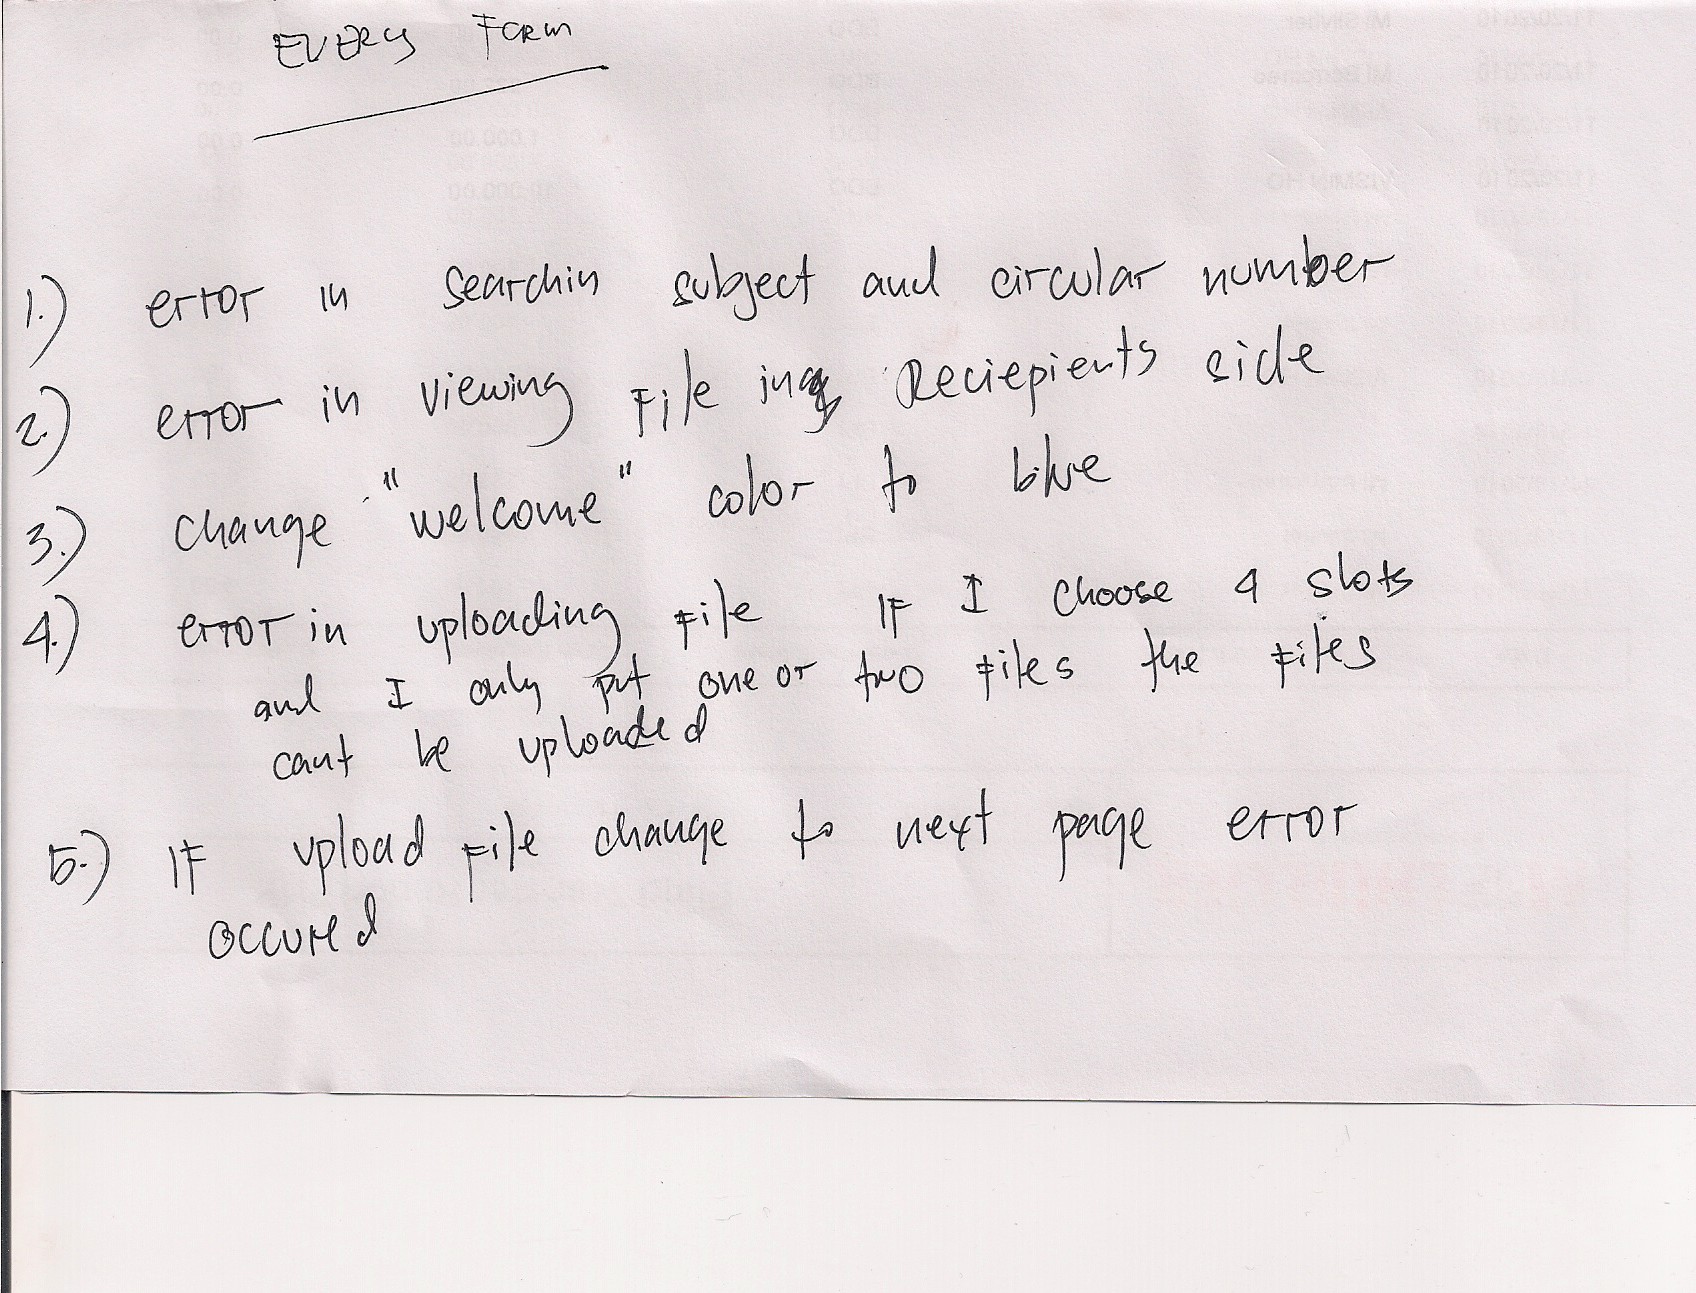 EVERY FORM
1.) error in searchin subject and circular number
2.) error in viewing File in Reciepients side
3.) change "welcome" color to blue
4.) error in uploading file IF I choose 4 slots
and I only put one or two files the files
cant be uploaded
5.) IF upload file change to next page error
occured